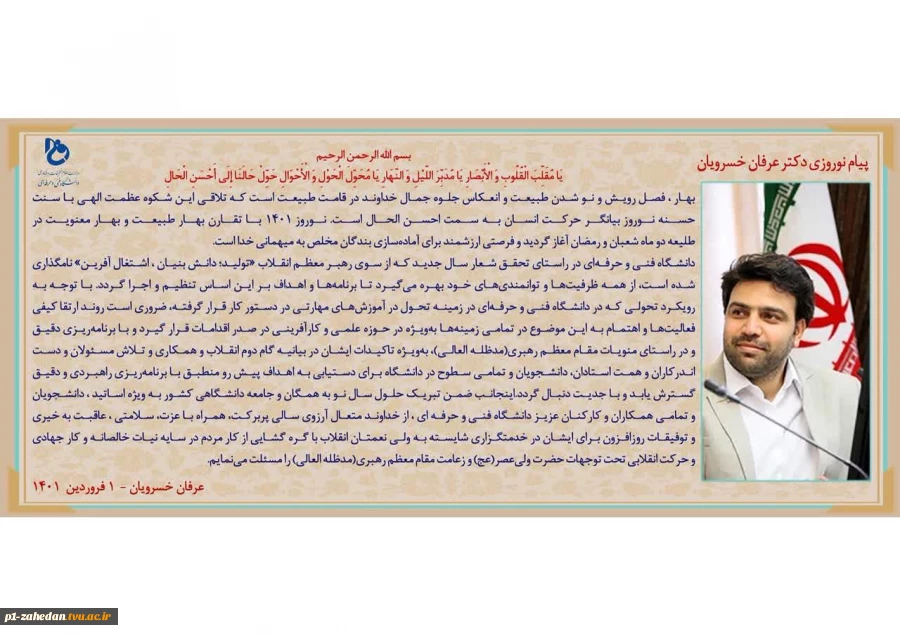 پیام نوروزی دکتر عرفان خسرویان
بسم الله الرحمن الرحیم
یَا مُقَلِّبَ الْقُلُوبِ وَ الْأَبْصَارِ یَا مُدَبِّرَ اللَّیْلِ وَ النَّهَارِ یَا مُحَوِّلَ الْحَوْلِ وَ الْأَحْوَالِ حَوِّلْ حَالَنَا إِلَى أَحْسَنِ الْحَالِ
بهار ، فصل رویش و نو شدن طبیعت و انعکاس جلوه جمال خداوند در قامت طبیعت است که تلاقی این شکوه عظمت الهی با سنت
حسنه نوروز بیانگر حرکت انسان به سمت احسن الحال است. نوروز ۱۴۰۱ با تقارن بهار طبیعت و بهار معنویت در
طلیعه دو ماه شعبان و رمضان آغاز گردید و فرصتی ارزشمند برای آماده‌سازی بندگان مخلص به میهمانی خدا است.
دانشگاه فنی و حرفه‌ای در راستای تحقق شعار سال جدید که از سوی رهبر معظم انقلاب «تولید؛ دانش بنیان ، اشتغال آفرین» نامگذاری
شده است، از همه ظرفیت‌ها و توانمندی‌های خود بهره می‌گیرد تا برنامه‌ها و اهداف بر این اساس تنظیم و اجرا گردد. با توجه به
رویکرد تحولی که در دانشگاه فنی و حرفه‌ای در زمینه تحول در آموزش‌های مهارتی در دستور کار قرار گرفته، ضروری است روند ارتقا کیفی
فعالیت‌ها و اهتمام به این موضوع در تمامی زمینه‌ها به‌ویژه در حوزه علمی و کارآفرینی در صدر اقدامات قرار گیرد و با برنامه‌ریزی دقیق
و در راستای منویات مقام معظم رهبری(مدظله العالی)، به‌ویژه تاکیدات ایشان در بیانیه گام دوم انقلاب و همکاری و تلاش مسئولان و دست
اندرکاران و همت استادان، دانشجویان و تمامی سطوح در دانشگاه برای دستیابی به اهداف پیش رو منطبق با برنامه‌ریزی راهبردی و دقیق
گسترش یابد و با جدیت دنبال گردد.اینجانب ضمن تبریک حلول سال نو به همگان و جامعه دانشگاهی کشور به ویژه اساتید ، دانشجویان
و تمامی همکاران و کارکنان عزیز دانشگاه فنی و حرفه ای ، از خداوند متعال آرزوی سالی پربرکت، همراه با عزت، سلامتی ، عاقبت به خیری
و توفیقات روزافزون برای ایشان در خدمتگزاری شایسته به ولی نعمتان انقلاب با گره گشایی از کار مردم در سایه نیات خالصانه و کار جهادی
و حرکت انقلابی تحت توجهات حضرت ولی‌عصر(عج) و زعامت مقام معظم رهبری(مدظله العالی) را مسئلت می‌نمایم.
عرفان خسرویان - ۱ فروردین ۱۴۰۱
p1-zahedan.tvu.ac.ir